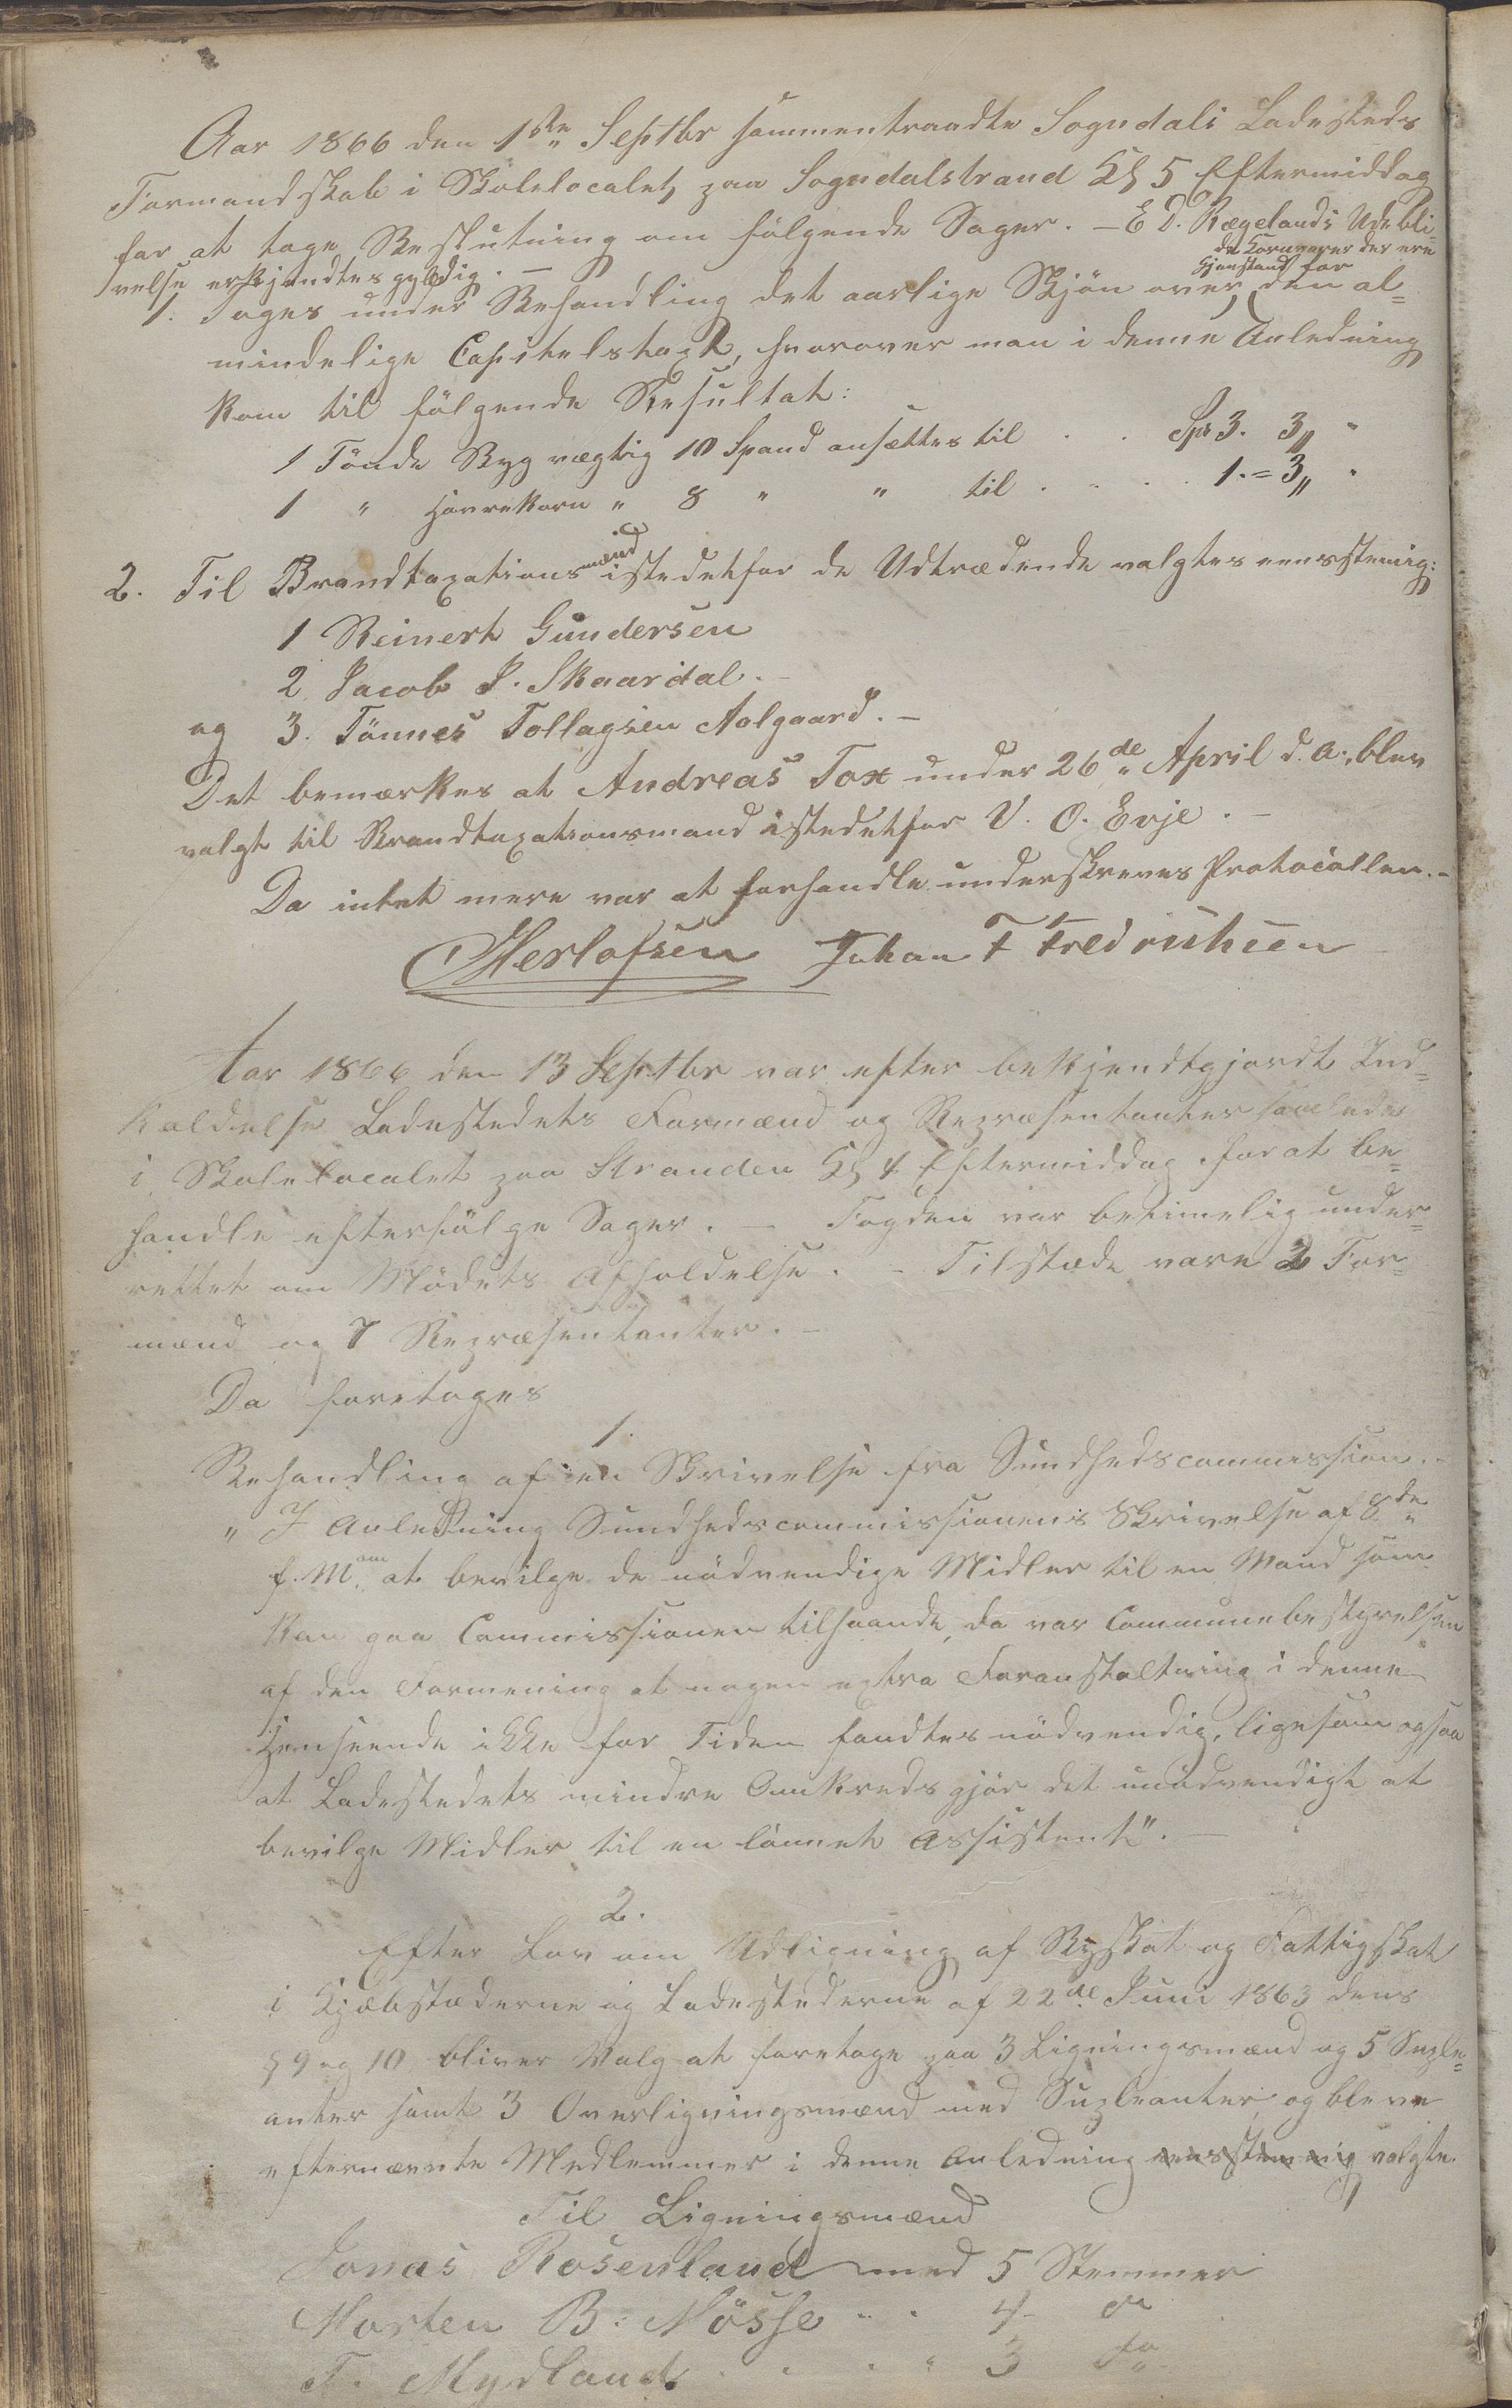 Aar 1866 den 1ste Septbr sammentraadte Sogndals Ladesteds
Formandskab i Skolelocalet paa Sogndalstrand Kl 5 Eftermiddag
for at tage Beslutning om følgende Sager. – E D. Rægelands Udebli-
velse erkjendtes gyldig. –
de Kornvarer der ere
Gjenstand for
1. Toges under Behandling det aarlige Skjøn over den al-
mindelige Capitelstaxt, hvorover man i denne Anledning
kom til følgende Resultat:
1 Tønde Byg vægtig 10 Spand ansættes til . . Spd 3. 3 „ "
1 " Havrekorn " 8 " " til . . . . 1. = 3 „ "
2. Til Brandtaxationsmænd istedetfor de Udtrædende valgtes eensstemig:
1 Reinert Gundersen
2 Jacob J. Skaardal. –
og 3. Tønnes Tollagsen Aalgaard. –
Det bemærkes at Andreas Tox under 26de April d. A. blev
valgt til Brandtaxationsmand istedetfor V. O. Evje. –
Da intet mere var at forhandle underskreves Protocollen. –
Herlofsen Johan F Fredriksen
Aar 1866 den 13 Septbr var efter bekjendtgjordt Ind-
kaldelse Ladestedets Formænd og Repræsentanter samlede
i Skolelocalet paa Stranden Kl 4 Eftermiddag for at be-
handle efterfølge Sager. – Fogden var betimelig under-
rettet om Mødets Afholdelse. – Tilstæde vare 2 For-
mænd og 7 Repræsentanter. –
Da foretoges
1.
Behandling af en Skrivelse fra Sundhedscommission. –
" I Anledning Sundhedscommissionens Skrivelse af 8de
f. M. om at bevilge de nødvendige Midler til en Mand som
kan gaa Commissionen tilhaande, da var Communebestyrelsen
af den Formening at nogen extra Foranstaltning i denne
Henseende ikke for Tiden fandtes nødvendig, ligesom ogsaa
at Ladestedets mindre Omkreds gjør det unødvendigt at
bevilge Midler til en lønnet Assistent". –
2.
Efter Lov om Udligning af Byskat og Fattigskat
i Kjøbstæderne og Ladestederne af 22de Juni 1863 dens
§ 9 og 10 bliver Valg at foretage paa 3 Ligningsmænd og 5 Suple-
anter samt 3 Overligningsmænd med Supleanter, og bleve
efternævnte Medlemmer i denne Anledning eensstemmig valgte.
Til Ligningsmænd
Jonas Rosenland med 5 Stemmer
Morten B. Mösse " " 4 do
T. Mydland . . " " 3 do